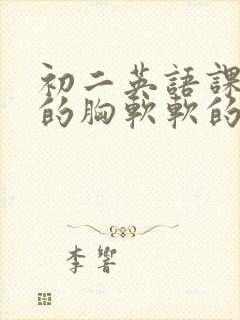 初二英語課
的胸軟軟的
李響